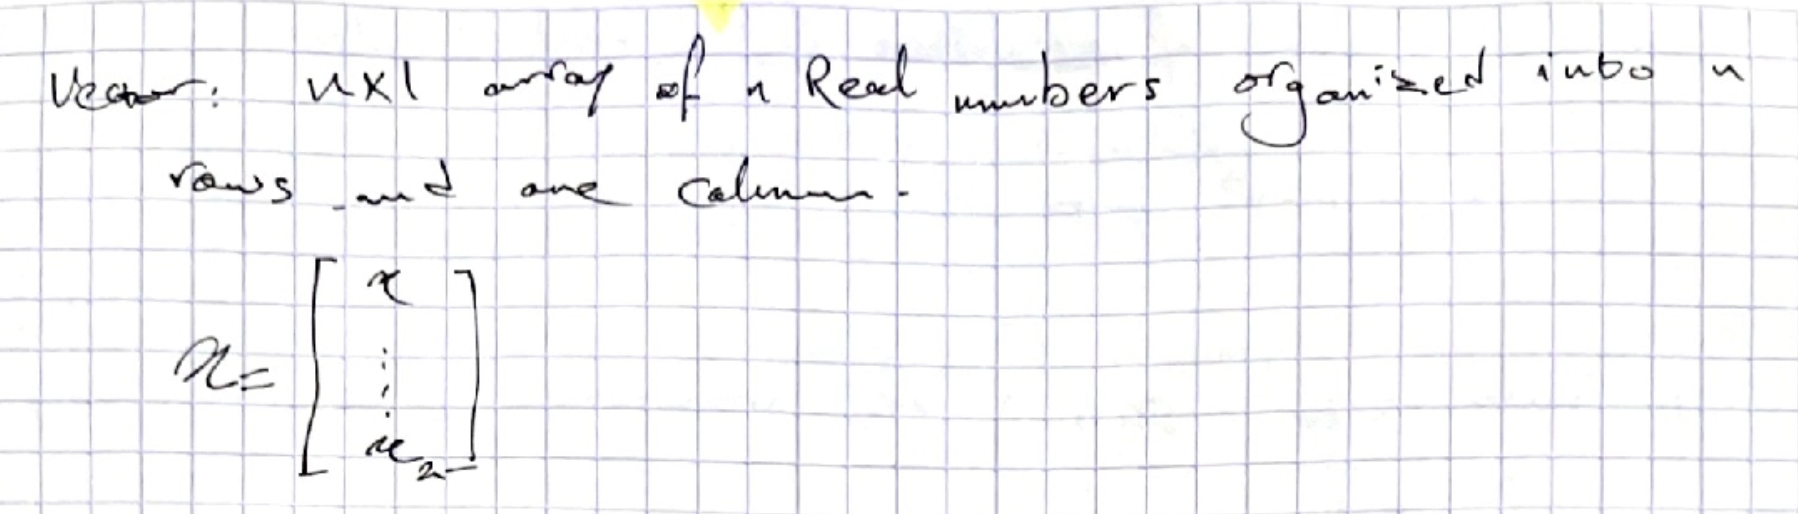 Vector: nx1 array of n Real numbers organized into n
rows and one column.
x
x = ⋮
x₂